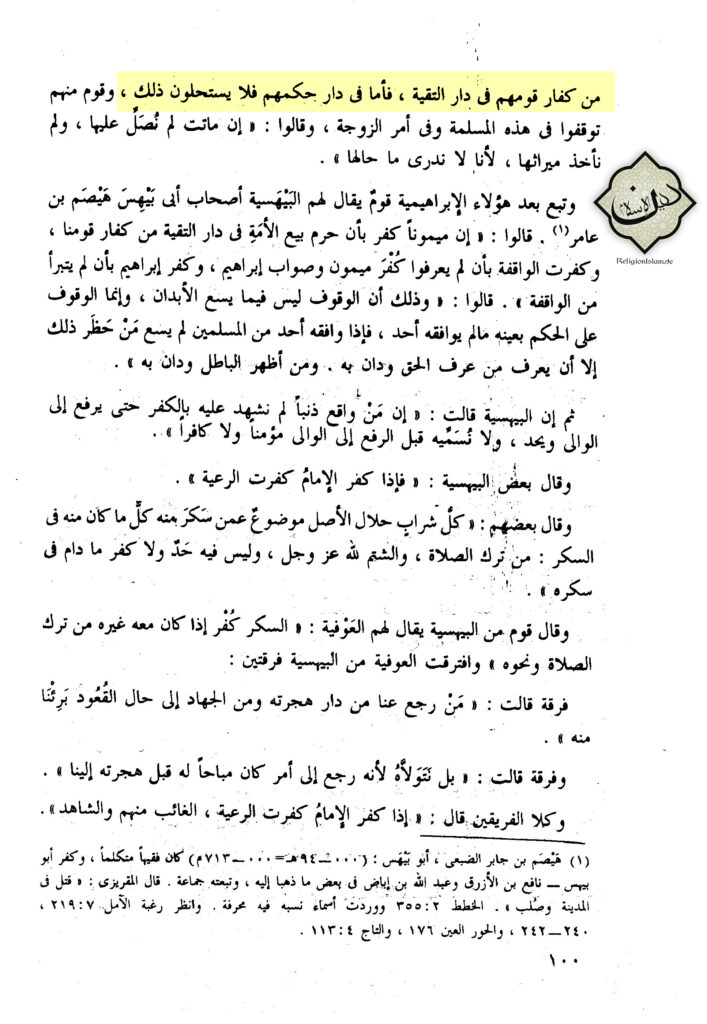 من كفار قومهم فى دار التقية ، فأما فى دار حكمهم فلا يستحلون ذلك ، وقوم منهم
توقفوا فى هذه المسلمة وفى أمر الزوجة ، وقالوا : « إن ماتت لم نُصَلِّ عليها ، ولم
نأخذ ميراثها ، لأنا لا ندرى ما حالها » .
وتبع بعد هؤلاء الإبراهيمية قومٌ يقال لهم البَيْهَسية أصحاب أبى بَيْهِسَ هَيْصَم بن
عامر(١) . قالوا : « إن ميموناً كفر بأن حرم بيع الأمَةِ فى دار التقية من كفار قومنا ،
وكفرت الواقفة بأن لم يعرفوا كُفْرَ ميمون وصواب إبراهيم ، وكفر إبراهيم بأن لم يتبرأ
من الواقفة » . قالوا : « وذلك أن الوقوف ليس فيما يسع الأبدان ، وإنما الوقوف
على الحكم بعينه مالم يوافقه أحد ، فإذا وافقه أحد من المسلمين لم يسع مَنْ حظَر ذلك
إلا أن يعرف من عرف الحق ودان به . ومن أظهر الباطل ودان به » .
ثم إن البيهسية قالت : « إن مَنْ واقع ذنباً لم نشهد عليه بالكفر حتى يرفع إلى
الوالى ويحد ، ولا نُسَمِّيه قبل الرفع إلى الوالى مؤمناً ولا كافراً » .
وقال بعضُ البيهسية : « فإذا كفر الإمامُ كفرت الرعية » .
وقال بعضهم : « كلُّ شرابٍ حلال الأصل موضوعٌ عمن سَكرَ منه كلُّ ما كان منه فى
السكر : من ترك الصلاة ، والشتم لله عز وجل ، وليس فيه حَدٌ ولا كفر ما دام فى
سكره » .
وقال قوم من البيهسية يقال لهم العَوْفية : « السكر كُفْر إذا كان معه غيره من ترك
الصلاة ونحوه » وافترقت العوفية من البيهسية فرقتين :
فرقة قالت : « مَنْ رجع عنا من دار هجرته ومن الجهاد إلى حال القُعُود بَرِئْنَا
منه » .
وفرقة قالت : « بل نَتَوَلاَّهُ لأنه رجع إلى أمر كان مباحاً له قبل هجرته إلينا » .
وكلا الفريقين قال : « إذا كفر الإمامُ كفرت الرعية ، الغائب منهم والشاهد» .
(١) هَيْصَم بن جابر الضبعى ، أبو بَيْهَس : (٠٠٠ـــ٩٤هـ=٠٠٠ـــ٧١٣م) كان فقيهاً متكلماً ، وكفر أبو
بيهس ـــ نافع بن الأزرق وعبد الله بن إباض فى بعض ما ذهبا إليه ، وتبعته جماعة . قال المقريزى : « قتل فى
المدينة وصُلب » . الخطط ٢:‏٣٥٥ ووردت أسماء نسبه فيه محرفة . وانظر رغبة الآمل ٧:‏٢١٩ ،
٢٤٠ـــ٢٤٢ ، والحور العين ١٧٦ ، والتاج ٤:‏١١٣ .
١٠٠
ReligionIslam.de